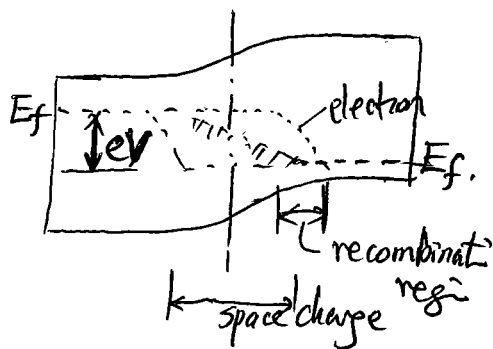 Ef
electron
eV
Ef.
recombinati
regi
space charge